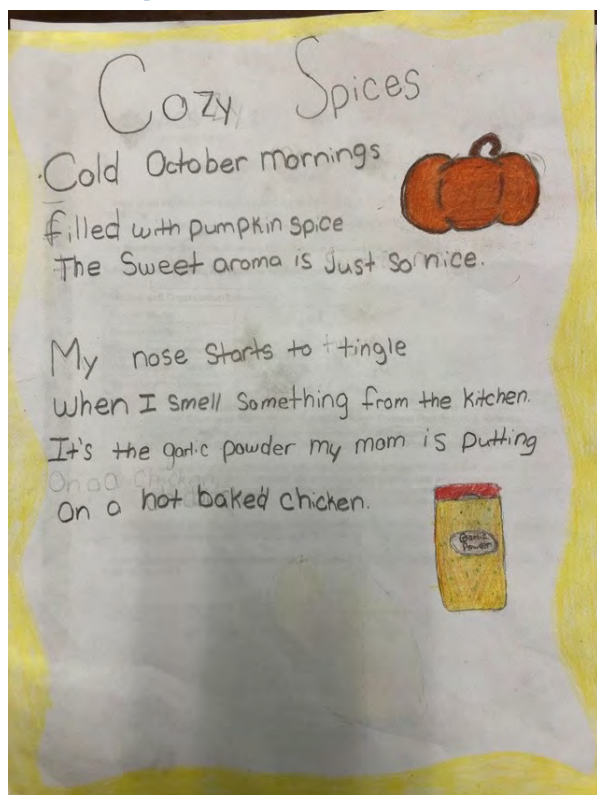 Cozy Spices
Cold October mornings
filled with pumpkin spice
The Sweet aroma is Just so nice.
My nose Starts to tingle
when I smell Something from the kitchen.
It's the garlic powder my mom is putting
On a Chicken
On a hot baked chicken.
Garlic
Powder